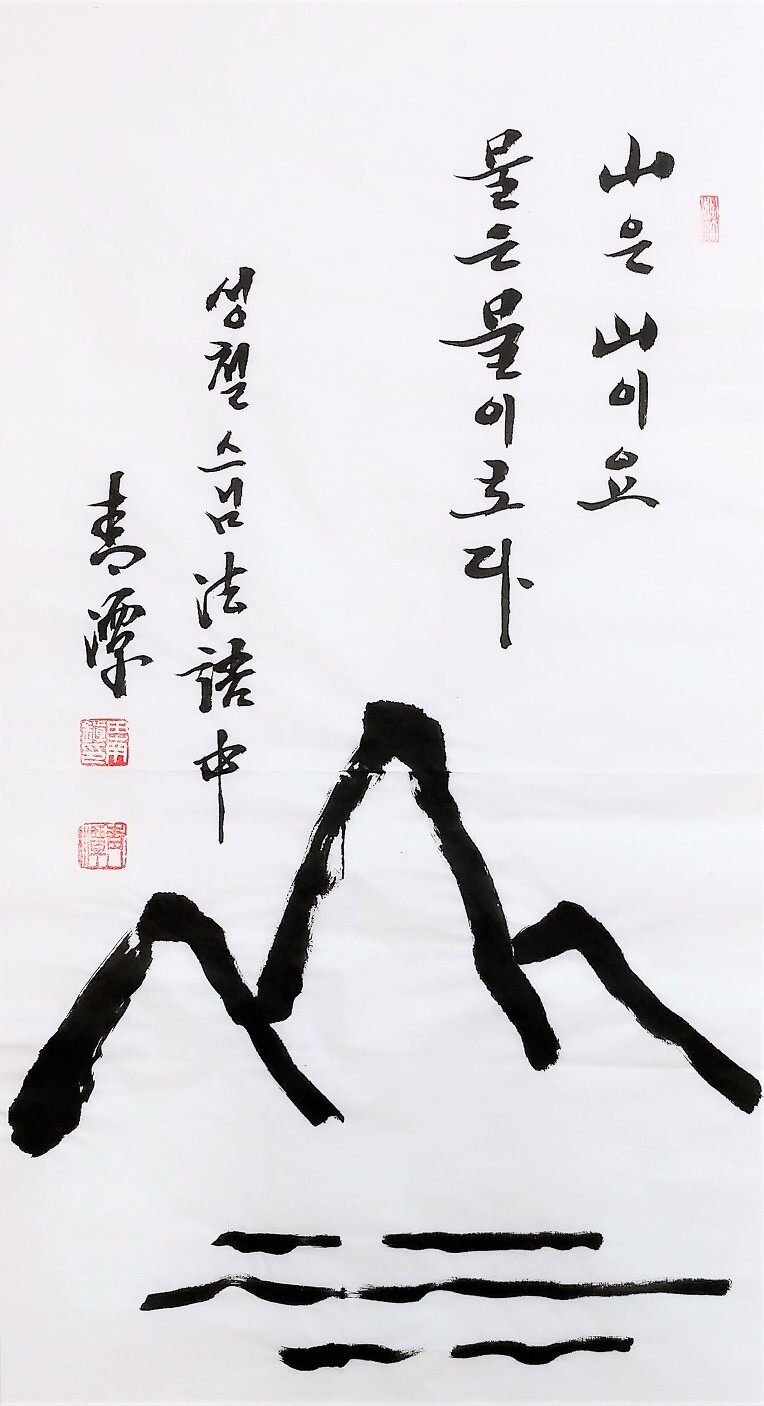 山은 山이요
물은 물이로다
성철스님 法語中
靑潭